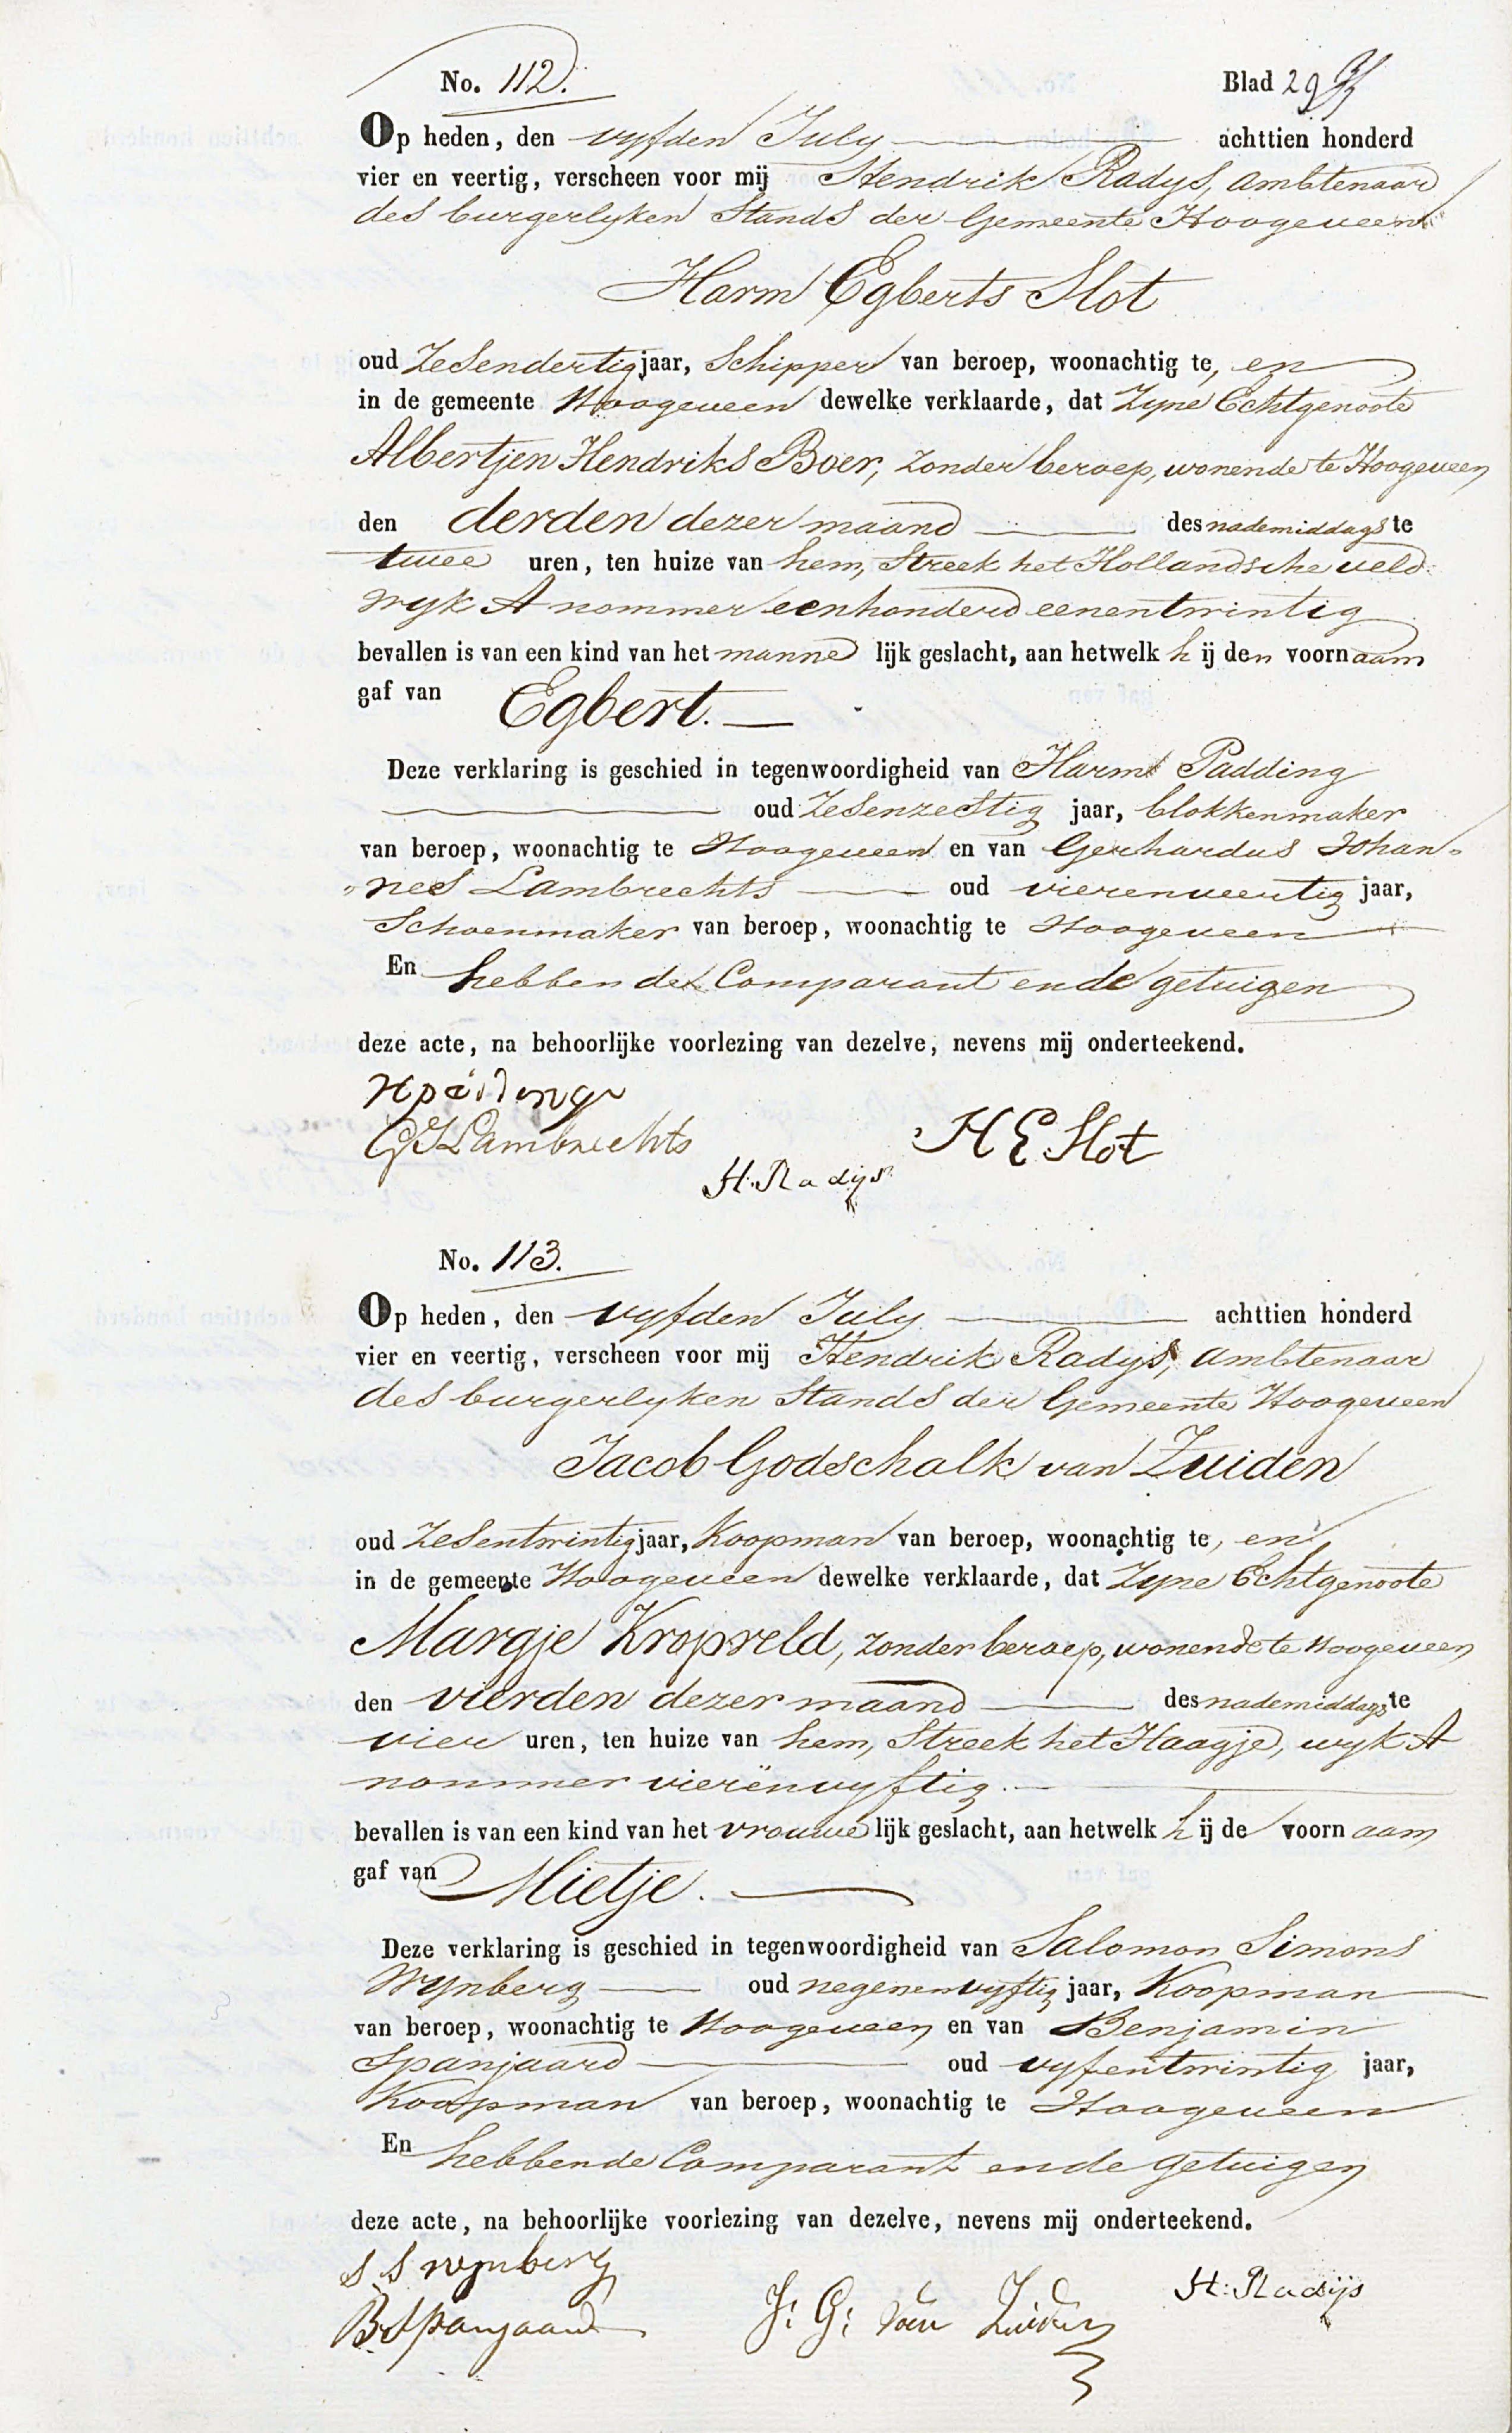 No. 112. Blad 29
Op heden, den vyfden July achttien honderd
vier en veertig, verscheen voor mij Hendrik Radys, ambtenaar
des burgerlyken Stands der Gemeente Hoogeveen
Harm Egberts Slot
oud Zesendertig jaar, Schipper van beroep, woonachtig te, en
in de gemeente Hoogeveen dewelke verklaarde, dat Zyne Echtgenoote
Albertjen Hendriks Boer, zonder beroep, wonende te Hoogeveen
den derden dezer maand des nademiddags te
twee uren, ten huize van hem, Streek het Hollandsche veld
wyk A nommer eenhonderd eenentwintig
bevallen is van een kind van het manne lijk geslacht, aan hetwelk h ij den voornaam
gaf van Egbert.
Deze verklaring is geschied in tegenwoordigheid van Harm Padding
oud Zesenzestig jaar, blokkenmaker
van beroep, woonachtig te Hoogeveen en van Gerhardus Johan=
=nes Lambrechts oud vierenveertig jaar,
Schoenmaker van beroep, woonachtig te Hoogeveen
En hebben de Comparant en de getuigen
deze acte, na behoorlijke voorlezing van dezelve, nevens mij onderteekend.
H padding
GJ Lambrechts H E Slot
H. Radijs
No. 113.
Op heden, den vyfden July achttien honderd
vier en veertig, verscheen voor mij Hendrik Radijs, ambtenaar
des burgerlyken Stands der Gemeente Hoogeveen
Jacob Godschalk van Zuiden
oud Zesentwintig jaar, Koopman van beroep, woonachtig te, en
in de gemeente Hoogeveen dewelke verklaarde, dat Zyne Echtgenoote
Margje Kropveld, zonder beroep, wonende te Hoogeveen
den vierden dezer maand des nademiddags te
vier uren, ten huize van hem, Streek het Haagje, wyk A
nommer vierënvyftig.
bevallen is van een kind van het vrouwe lijk geslacht, aan hetwelk h ij de voornaam
gaf van Mietje.
Deze verklaring is geschied in tegenwoordigheid van Salomon Simons
Wynberg oud negenenvyftig jaar, Koopman
van beroep, woonachtig te Hoogeveen en van Benjamin
Spanjaard oud vyfentwintig jaar,
Koopman van beroep, woonachtig te Hoogeveen
En hebben de Comparant en de getuigen
deze acte, na behoorlijke voorlezing van dezelve, nevens mij onderteekend.
S S wynberg
B Spanjaard J: G: van Zuiden H: Radijs